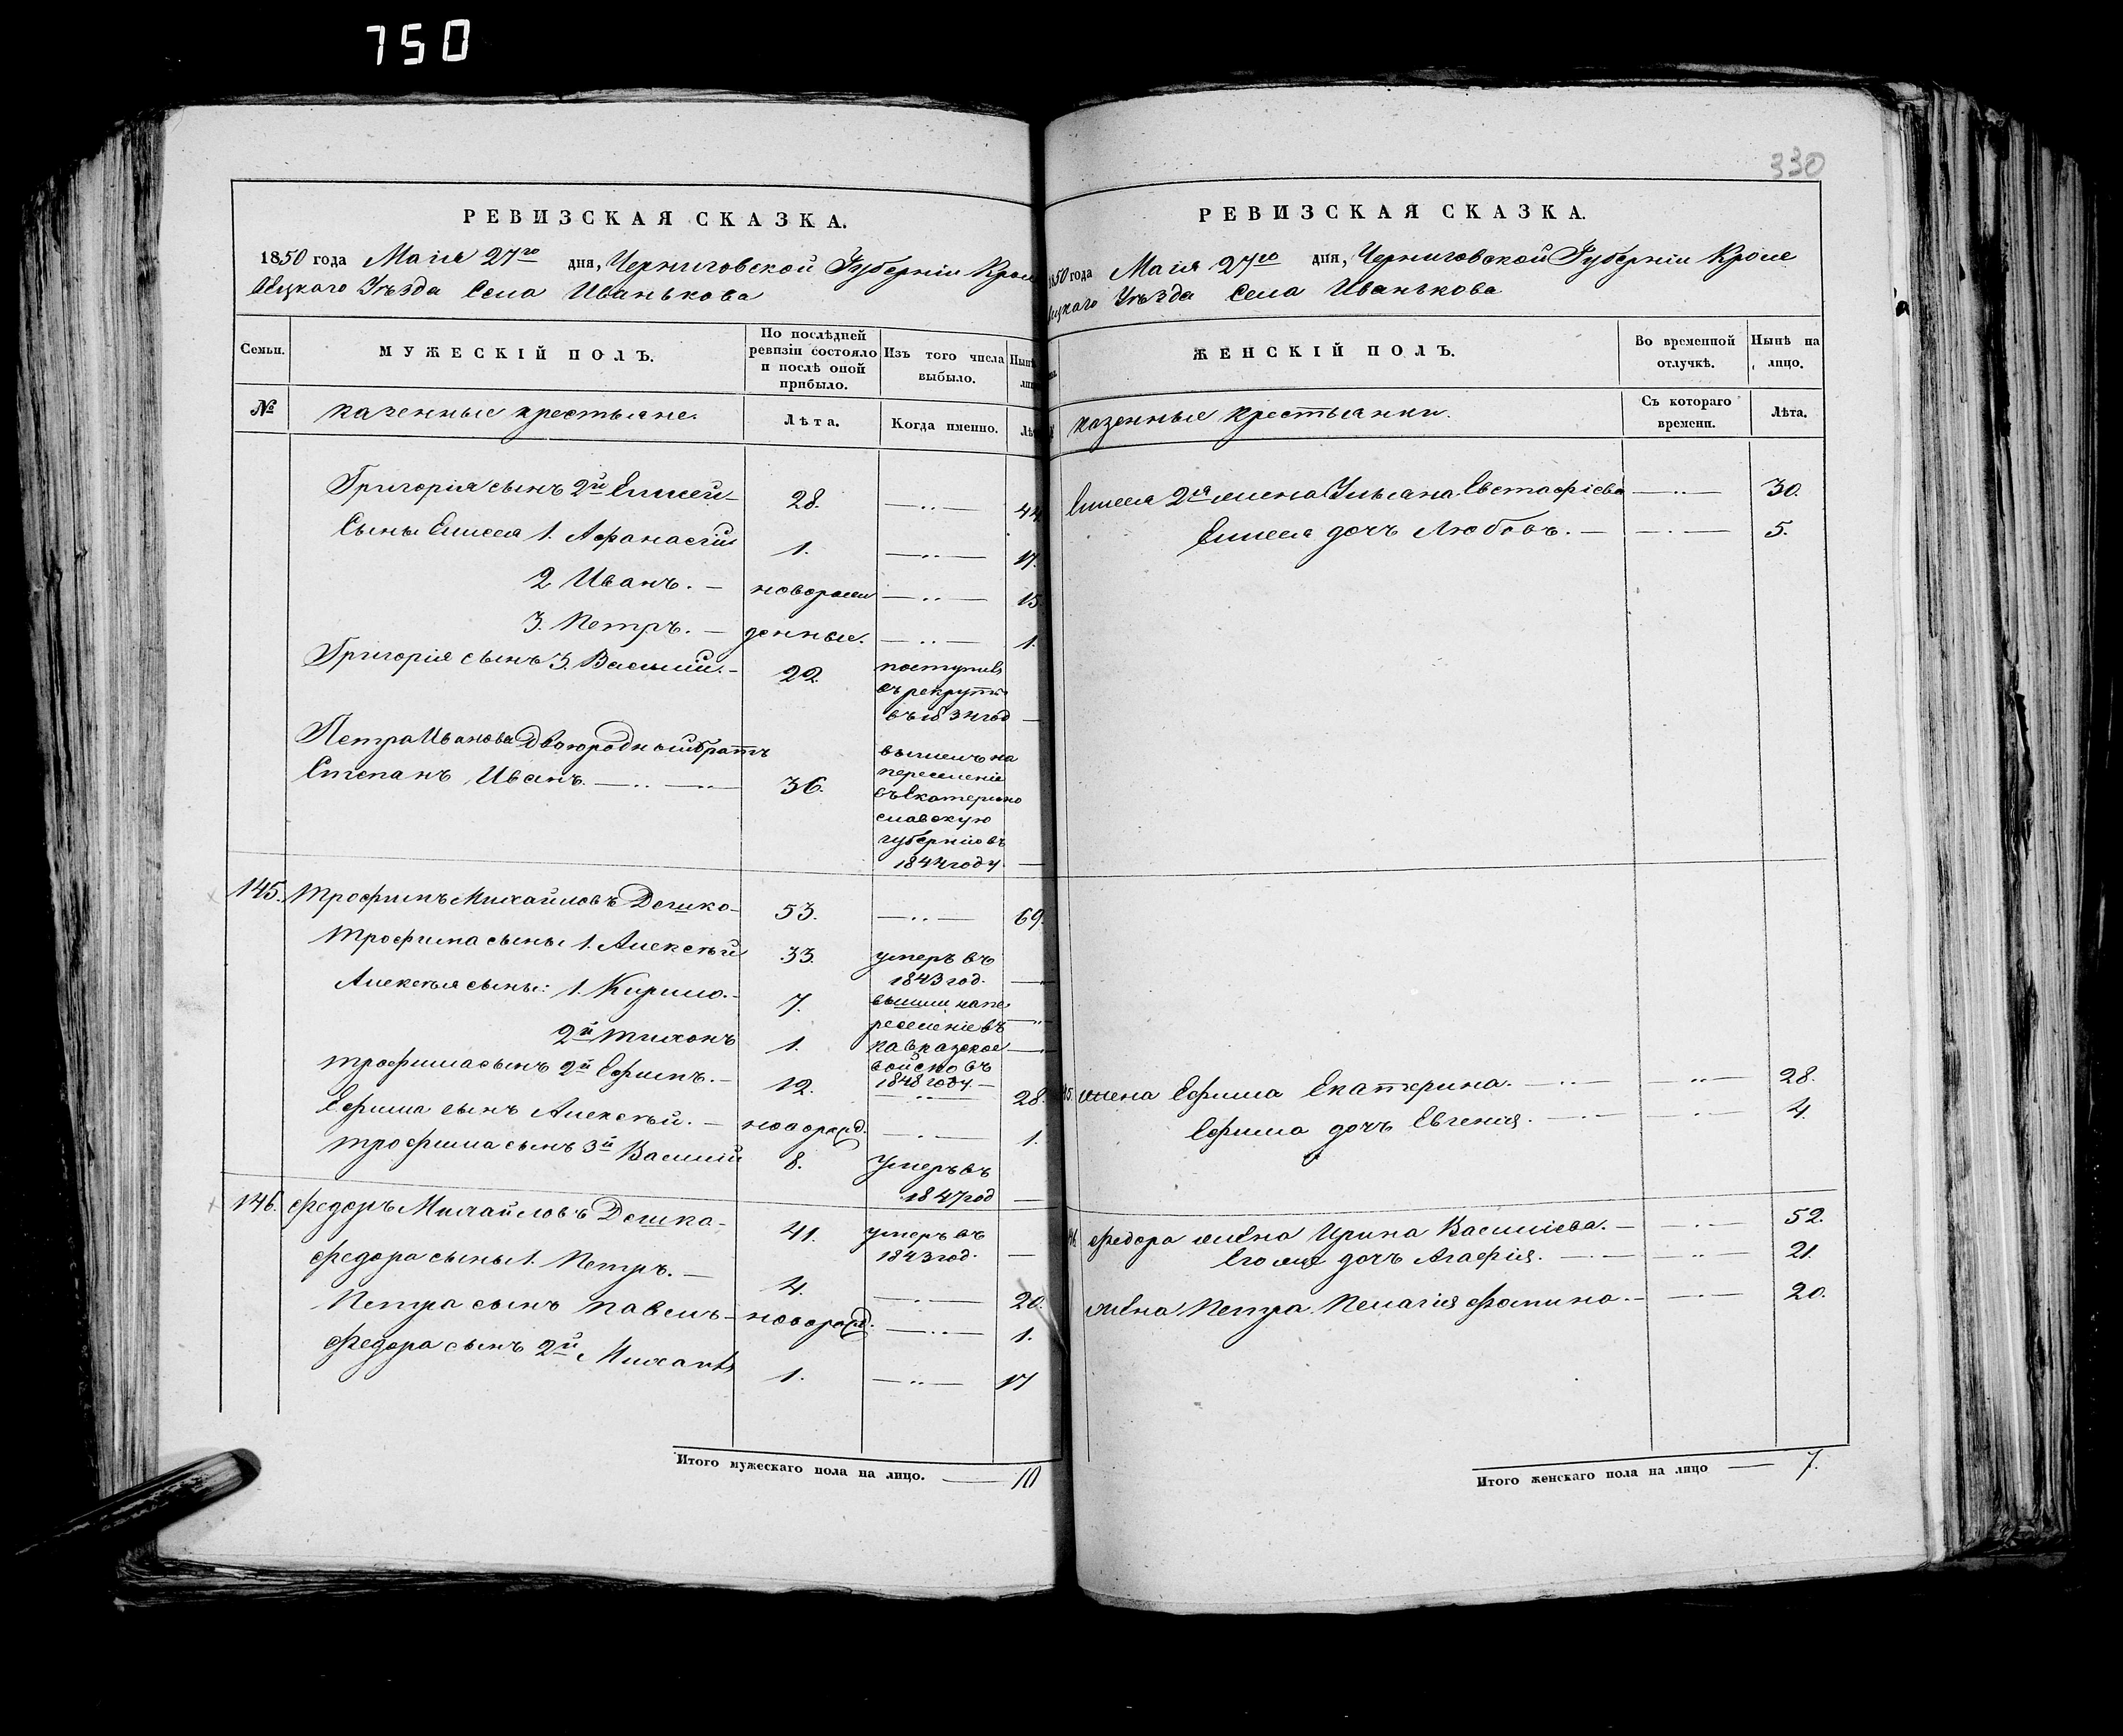 750
330
РЕВИЗСКАЯ СКАЗКА.
1850 года Маія 27го дня, Черниговской Губерніи Кроле
вецкаго Уѣзда Села Иванькова
Семьи.
МУЖЕСКІЙ ПОЛЪ.
По послѣдней ревизіи состояло и послѣ оной прибыло.
Изъ того числа выбыло.
№
казенные крестьяне.
Лѣта.
Когда именно.
Григорія сынъ 2й Елисей 28. 44
Сыны Елисея 1. Афанасій 1. 17.
2 Иванъ. новорож 15.
3. Петръ. денные. 1.
Григорія сынъ 3. Василій. 22. поступилъ
въ рекруты
въ 1834 год
Петра Иванова Двоюродный братъ
Степанъ Иванъ. 36. вышелъ на
переселеніе
въ Екатерино
славскую
губернію въ
1844 году.
145. Трофимъ Михайловъ Дешко 53. 69.
Трофима сыны 1. Алексѣй 33. умеръ въ
1843 год.
Алексѣя сыны: 1. Кирило. 7. вышли на пе
реселеніе въ
2й Тихонъ 1. Кавказское
войско въ
1848 году.
Трофима сынъ 2й Ефимъ. 12. 28.
Ефима сынъ Алексѣй. новорожд. 1.
Трофима сынъ 3й Василій 8. Умеръ въ
1847 год
146. Федоръ Михайловъ Дешко 41. умеръ въ
1843 год.
Федора сыны 1. Петръ. 4. 20.
Петра сынъ Павелъ новорожд. 1.
Федора сынъ 2й Михаилъ 1. 17
Итого мужескаго пола на лицо. 10
РЕВИЗСКАЯ СКАЗКА.
1850 года Маія 27го дня, Черниговской Губерніи Кроле
вецкаго Уѣзда Села Иванькова
ЖЕНСКІЙ ПОЛЪ.
Во временной отлучкѣ.
Нынѣ на лицо.
казенные крестьянки.
Съ котораго времени.
Лѣта.
Елисея 2я жена Ульяна Евстафіева 30.
Елисея дочь Любовь. 5.
жена Ефима Екатерина. 28.
Ефима дочь Евгенія. 4.
Федора жена Ирина Василіева. 52.
Его же дочь Агафія. 21.
жена Петра Пелагія Фомина. 20.
Итого женскаго пола на лицо 7.